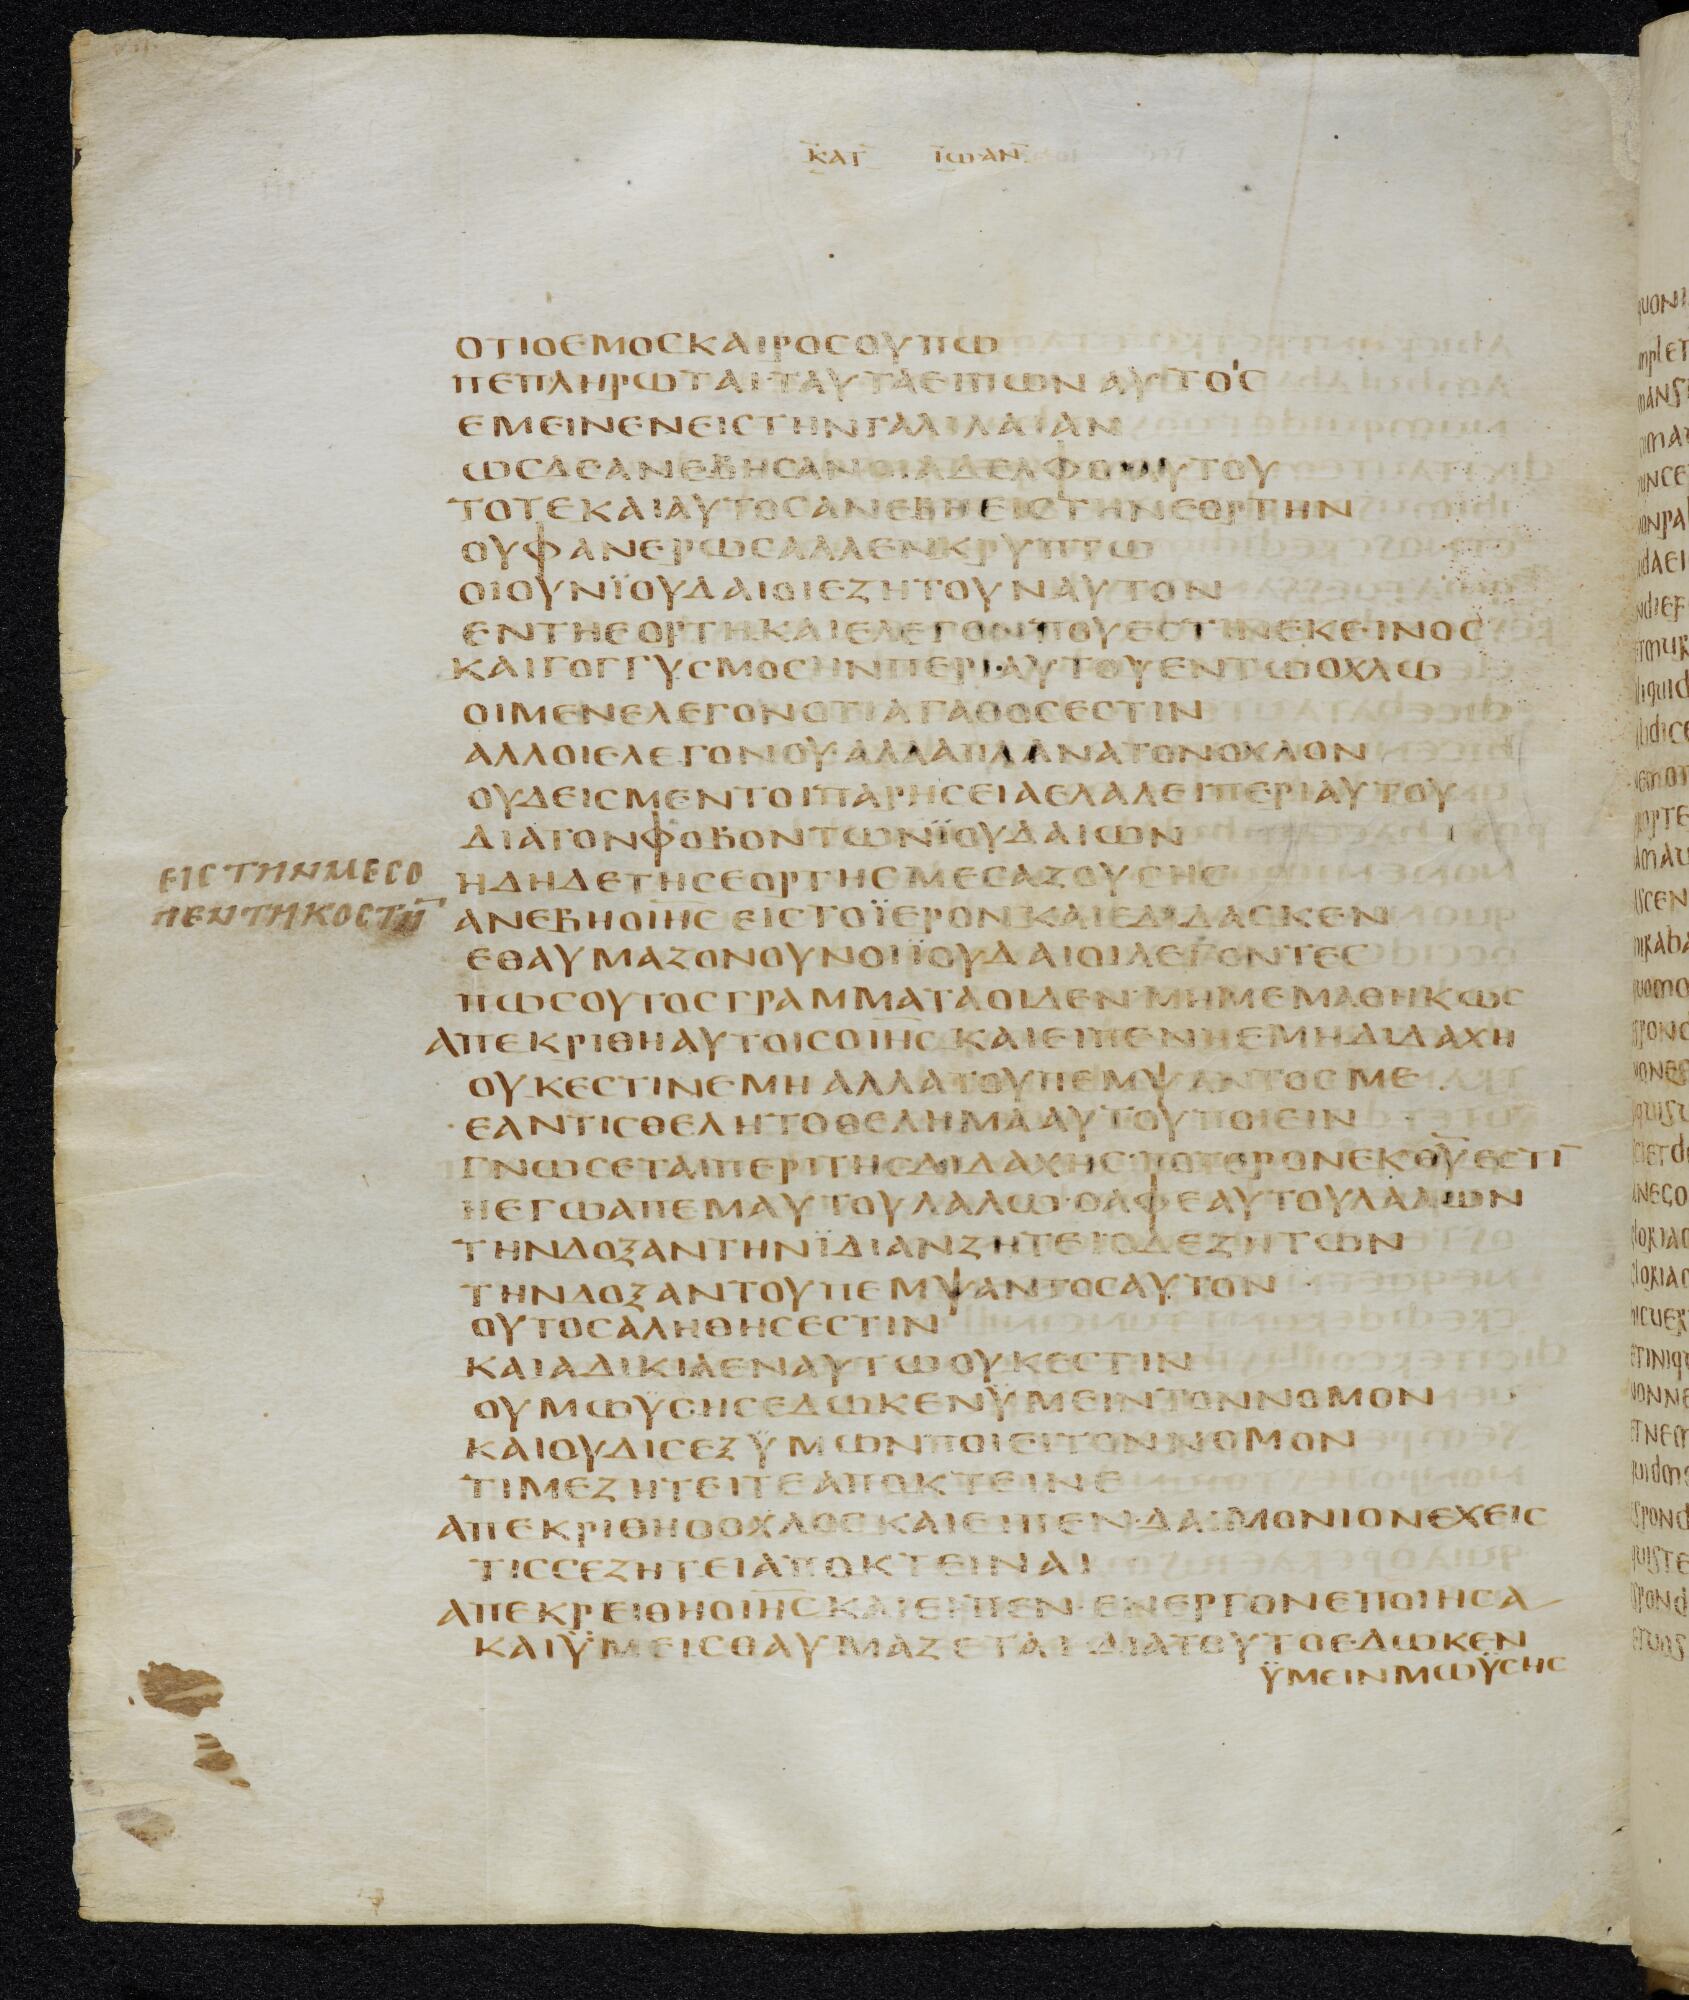 ΚΑΤ ΙΩΑΝ
ΟΤΙΟΕΜΟΣΚΑΙΡΟΣΟΥΠΩ
ΠΕΠΛΗΡΩΤΑΙ·ΤΑΥΤΑΕΙΠΩΝ ΑΥΤΟΣ
ΕΜΕΙΝΕΝΕΙΣΤΗΝΓΑΛΙΛΑΙΑΝ
ΩΣΔΕΑΝΕΒΗΣΑΝΟΙΑΔΕΛΦΟΙΑΥΤΟΥ
ΤΟΤΕΚΑΙΑΥΤΟΣΑΝΕΒΗΕΙΣΤΗΝΕΟΡΤΗΝ
ΟΥΦΑΝΕΡΩΣΑΛΛΕΝΚΡΥΠΤΩ
ΟΙΟΥΝΪΟΥΔΑΙΟΙΕΖΗΤΟΥΝΑΥΤΟΝ
ΕΝΤΗΕΟΡΤΗ·ΚΑΙΕΛΕΓΟΝΠΟΥΕΣΤΙΝΕΚΕΙΝΟΣ
ΚΑΙΓΟΓΓΥΣΜΟΣΗΝΠΕΡΙ·ΑΥΤΟΥΕΝΤΩΟΧΛΩ
ΟΙΜΕΝΕΛΕΓΟΝΟΤΙΑΓΑΘΟΣΕΣΤΙΝ
ΑΛΛΟΙΕΛΕΓΟΝΟΥ·ΑΛΛΑΠΛΑΝΑΤΟΝΟΧΛΟΝ
ΟΥΔΕΙΣΜΕΝΤΟΙΠΑΡΗΣΕΙΑΕΛΑΛΕΙΠΕΡΙΑΥΤΟΥ
ΔΙΑΤΟΝΦΟΒΟΝΤΩΝΪΟΥΔΑΙΩΝ
ΕΙΣΤΗΝΜΕΣΟ
ΠΕΝΤΗΚΟΣΤΗ̅
ΗΔΗΔΕΤΗΣΕΟΡΤΗΣΜΕΣΑΖΟΥΣΗΣ
ΑΝΕΒΗΟΙΗ̅Σ̅ ΕΙΣΤΟΪΕΡΟΝΚΑΙΕΔΙΔΑΣΚΕΝ
ΕΘΑΥΜΑΖΟΝΟΥΝΟΙΪΟΥΔΑΙΟΙΛΕΓΟΝΤΕΣ
ΠΩΣΟΥΤΟΣΓΡΑΜΜΑΤΑΟΙΔΕΝ·ΜΗΜΕΜΑΘΗΚΩΣ
ΑΠΕΚΡΙΘΗΑΥΤΟΙΣΟΙΗ̅Σ̅ ΚΑΙΕΙΠΕΝΗΕΜΗΔΙΔΑΧΗ
ΟΥΚΕΣΤΙΝΕΜΗ ΑΛΛΑΤΟΥΠΕΜΨΑΝΤΟΣΜΕ
ΕΑΝΤΙΣΘΕΛΗΤΟΘΕΛΗΜΑΑΥΤΟΥΠΟΙΕΙΝ
ΓΝΩΣΕΤΑΙΠΕΡΙΤΗΣΔΙΔΑΧΗΣ·ΠΟΤΕΡΟΝΕΚΘ̅Υ̅ΕΣΤΙ̅
ΗΕΓΩΑΠΕΜΑΥΤΟΥΛΑΛΩ·ΟΑΦΕΑΥΤΟΥΛΑΛΩΝ
ΤΗΝΔΟΞΑΝΤΗΝΪΔΙΑΝΖΗΤΕΙΟΔΕΖΗΤΩΝ
ΤΗΝΔΟΞΑΝΤΟΥΠΕΜΨΑΝΤΟΣΑΥΤΟΝ
ΟΥΤΟΣΑΛΗΘΗΣΕΣΤΙΝ
ΚΑΙΑΔΙΚΙΑΕΝΑΥΤΩΟΥΚΕΣΤΙΝ
ΟΥΜΩΫΣΗΣΕΔΩΚΕΝΫΜΕΙΝΤΟΝΝΟΜΟΝ
ΚΑΙΟΥΔΙΣΕΞΫΜΩΝΠΟΙΕΙΤΟΝΝΟΜΟΝ
ΤΙΜΕΖΗΤΕΙΤΕΑΠΟΚΤΕΙΝΕ
ΑΠΕΚΡΙΘΗΟΟΧΛΟΣΚΑΙΕΙΠΕΝ·ΔΑΙΜΟΝΙΟΝΕΧΕΙΣ
ΤΙΣΣΕΖΗΤΕΙΑΠΟΚΤΕΙΝΑΙ
ΑΠΕΚΡΕΙΘΗΟΙΗ̅Σ̅ΚΑΙΕΙΠΕΝ·ΕΝΕΡΓΟΝΕΠΟΙΗΣΑ
ΚΑΙΫΜΕΙΣΘΑΥΜΑΖΕΤΑΙ·ΔΙΑΤΟΥΤΟΕΔΩΚΕΝ
ΫΜΕΙΝΜΩΫΣΗΣ